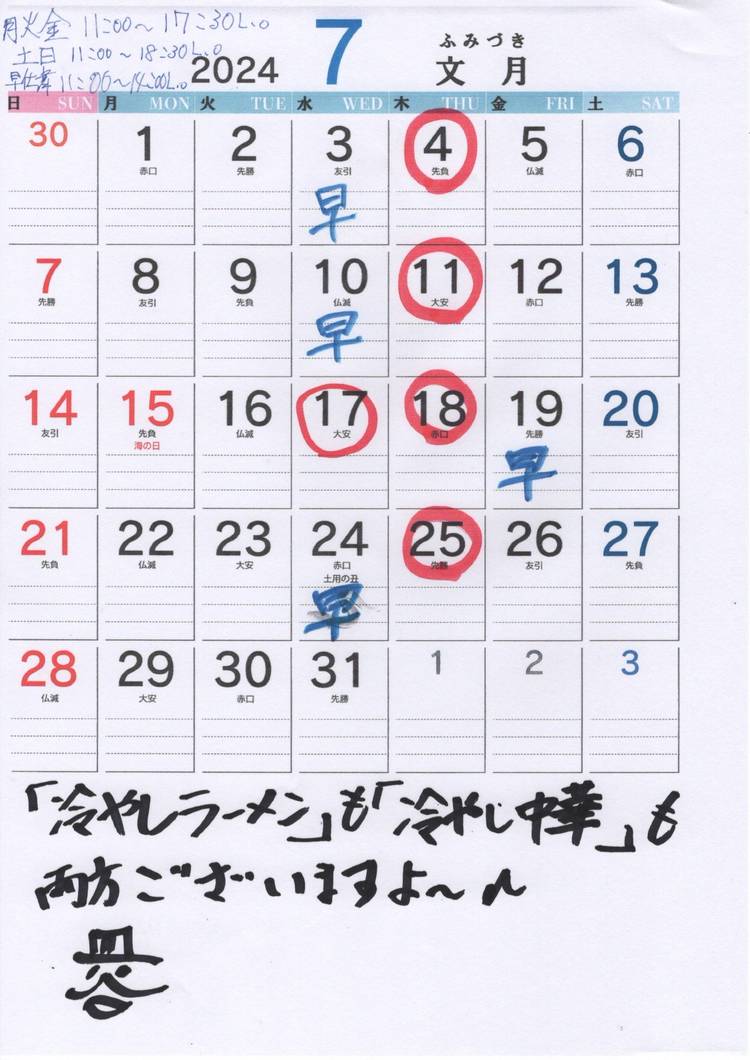 月火金 11:00～17:30L.o
土日 11:00～18:30L.o
早仕舞 11:00～14:00L.o
2024 7 ふみづき
文月
日 SUN 月 MON 火 TUE 水 WED 木 THU 金 FRI 土 SAT
30 1 2 3 4 5 6
赤口 先勝 友引 先負 仏滅 赤口
早
7 8 9 10 11 12 13
先勝 友引 先負 仏滅 大安 赤口 先勝
早
14 15 16 17 18 19 20
友引 先負 仏滅 大安 赤口 先勝 友引
海の日
早
21 22 23 24 25 26 27
先負 仏滅 大安 赤口 先勝 友引 先負
土用の丑
早
28 29 30 31 1 2 3
仏滅 大安 赤口 先勝
「冷やしラーメン」も「冷やし中華」も
両方ございますよ～